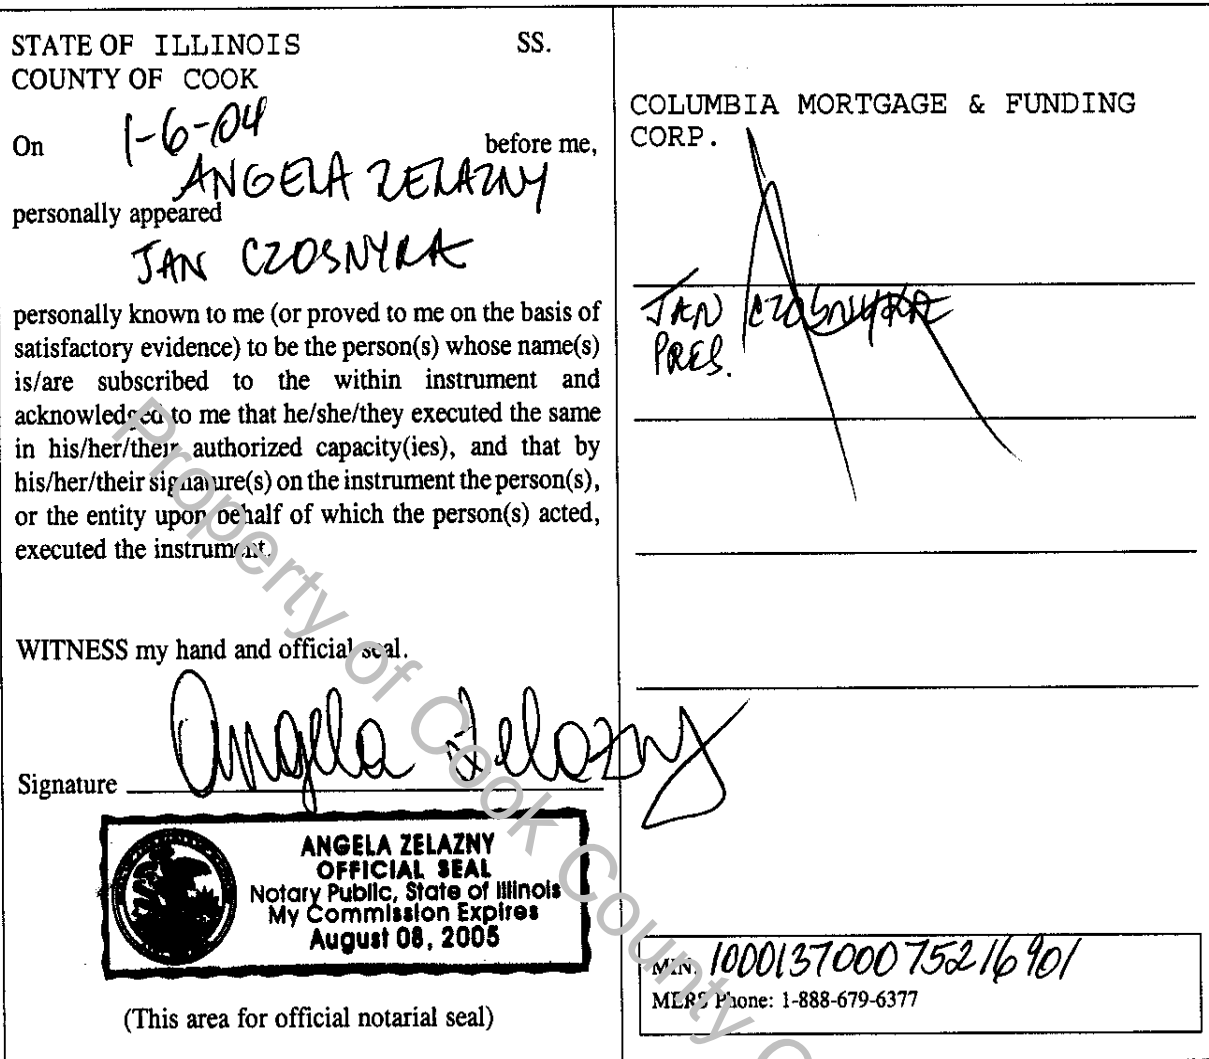 STATE OF ILLINOIS SS.
COUNTY OF COOK
On 1-6-04 before me,
ANGELA ZELAZNY
personally appeared
JAN CZOSNYKA
personally known to me (or proved to me on the basis of
satisfactory evidence) to be the person(s) whose name(s)
is/are subscribed to the within instrument and
acknowledged to me that he/she/they executed the same
in his/her/their authorized capacity(ies), and that by
his/her/their signature(s) on the instrument the person(s),
or the entity upon behalf of which the person(s) acted,
executed the instrument.
WITNESS my hand and official seal.
Signature Angela Zelazny
ANGELA ZELAZNY
OFFICIAL SEAL
Notary Public, State of Illinois
My Commission Expires
August 08, 2005
(This area for official notarial seal)
COLUMBIA MORTGAGE & FUNDING
CORP.
JAN CZOSNYKA
PRES.
MIN: 100013700075216901
MERS Phone: 1-888-679-6377
Property of Cook County